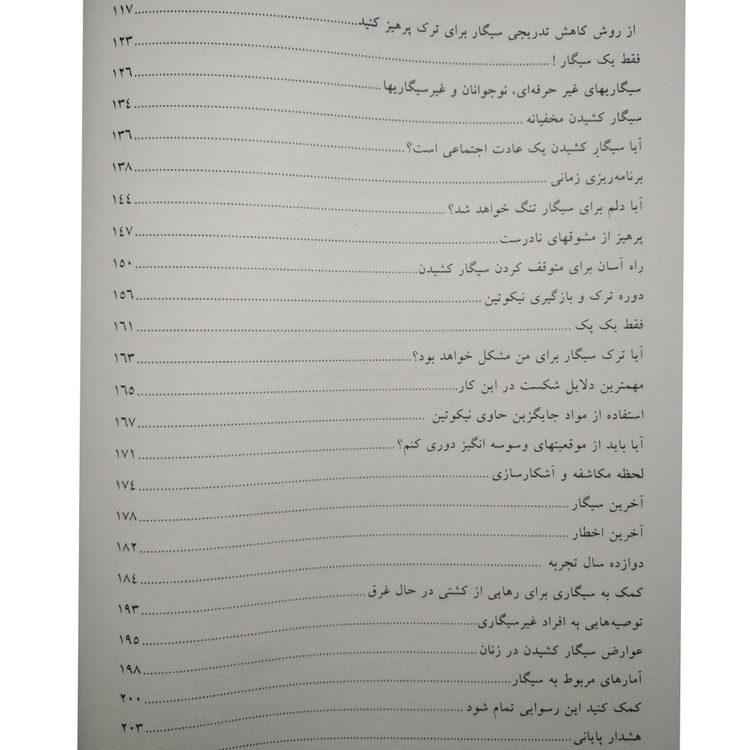 از روش کاهش تدریجی سیگار برای ترک پرهیز کنید ۱۱۷
فقط یک سیگار ! ۱۲۳
سیگاریهای غیر حرفه‌ای، نوجوانان و غیرسیگاریها ۱۲٦
سیگار کشیدن مخفیانه ۱۳٤
آیا سیگار کشیدن یک عادت اجتماعی است؟ ۱۳٦
برنامه‌ریزی زمانی ۱۳۸
آیا دلم برای سیگار تنگ خواهد شد؟ ۱٤٤
پرهیز از مشوقهای نادرست ۱٤۷
راه آسان برای متوقف کردن سیگار کشیدن ۱۵۰
دوره ترک و بازگیری نیکوتین ۱۵٦
فقط یک پک ۱٦۱
آیا ترک سیگار برای من مشکل خواهد بود؟ ۱٦۳
مهمترین دلایل شکست در این کار ۱٦۵
استفاده از مواد جایگزین حاوی نیکوتین ۱٦۷
آیا باید از موقعیتهای وسوسه انگیز دوری کنم؟ ۱۷۱
لحظه مکاشفه و آشکارسازی ۱۷٤
آخرین سیگار ۱۷۸
آخرین اخطار ۱۸۲
دوازده سال تجربه ۱۸٤
کمک به سیگاری برای رهایی از کشتی در حال غرق ۱۹۳
توصیه‌هایی به افراد غیرسیگاری ۱۹۵
عوارض سیگار کشیدن در زنان ۱۹۸
آمارهای مربوط به سیگار ۲۰۰
کمک کنید این رسوایی تمام شود ۲۰۳
هشدار پایانی